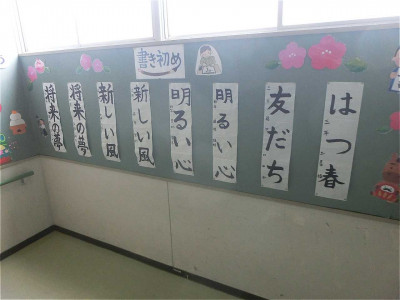 書き初め
はつ春
友だち
明るい心
明るい心
新しい風
新しい風
将来の夢
将来の夢